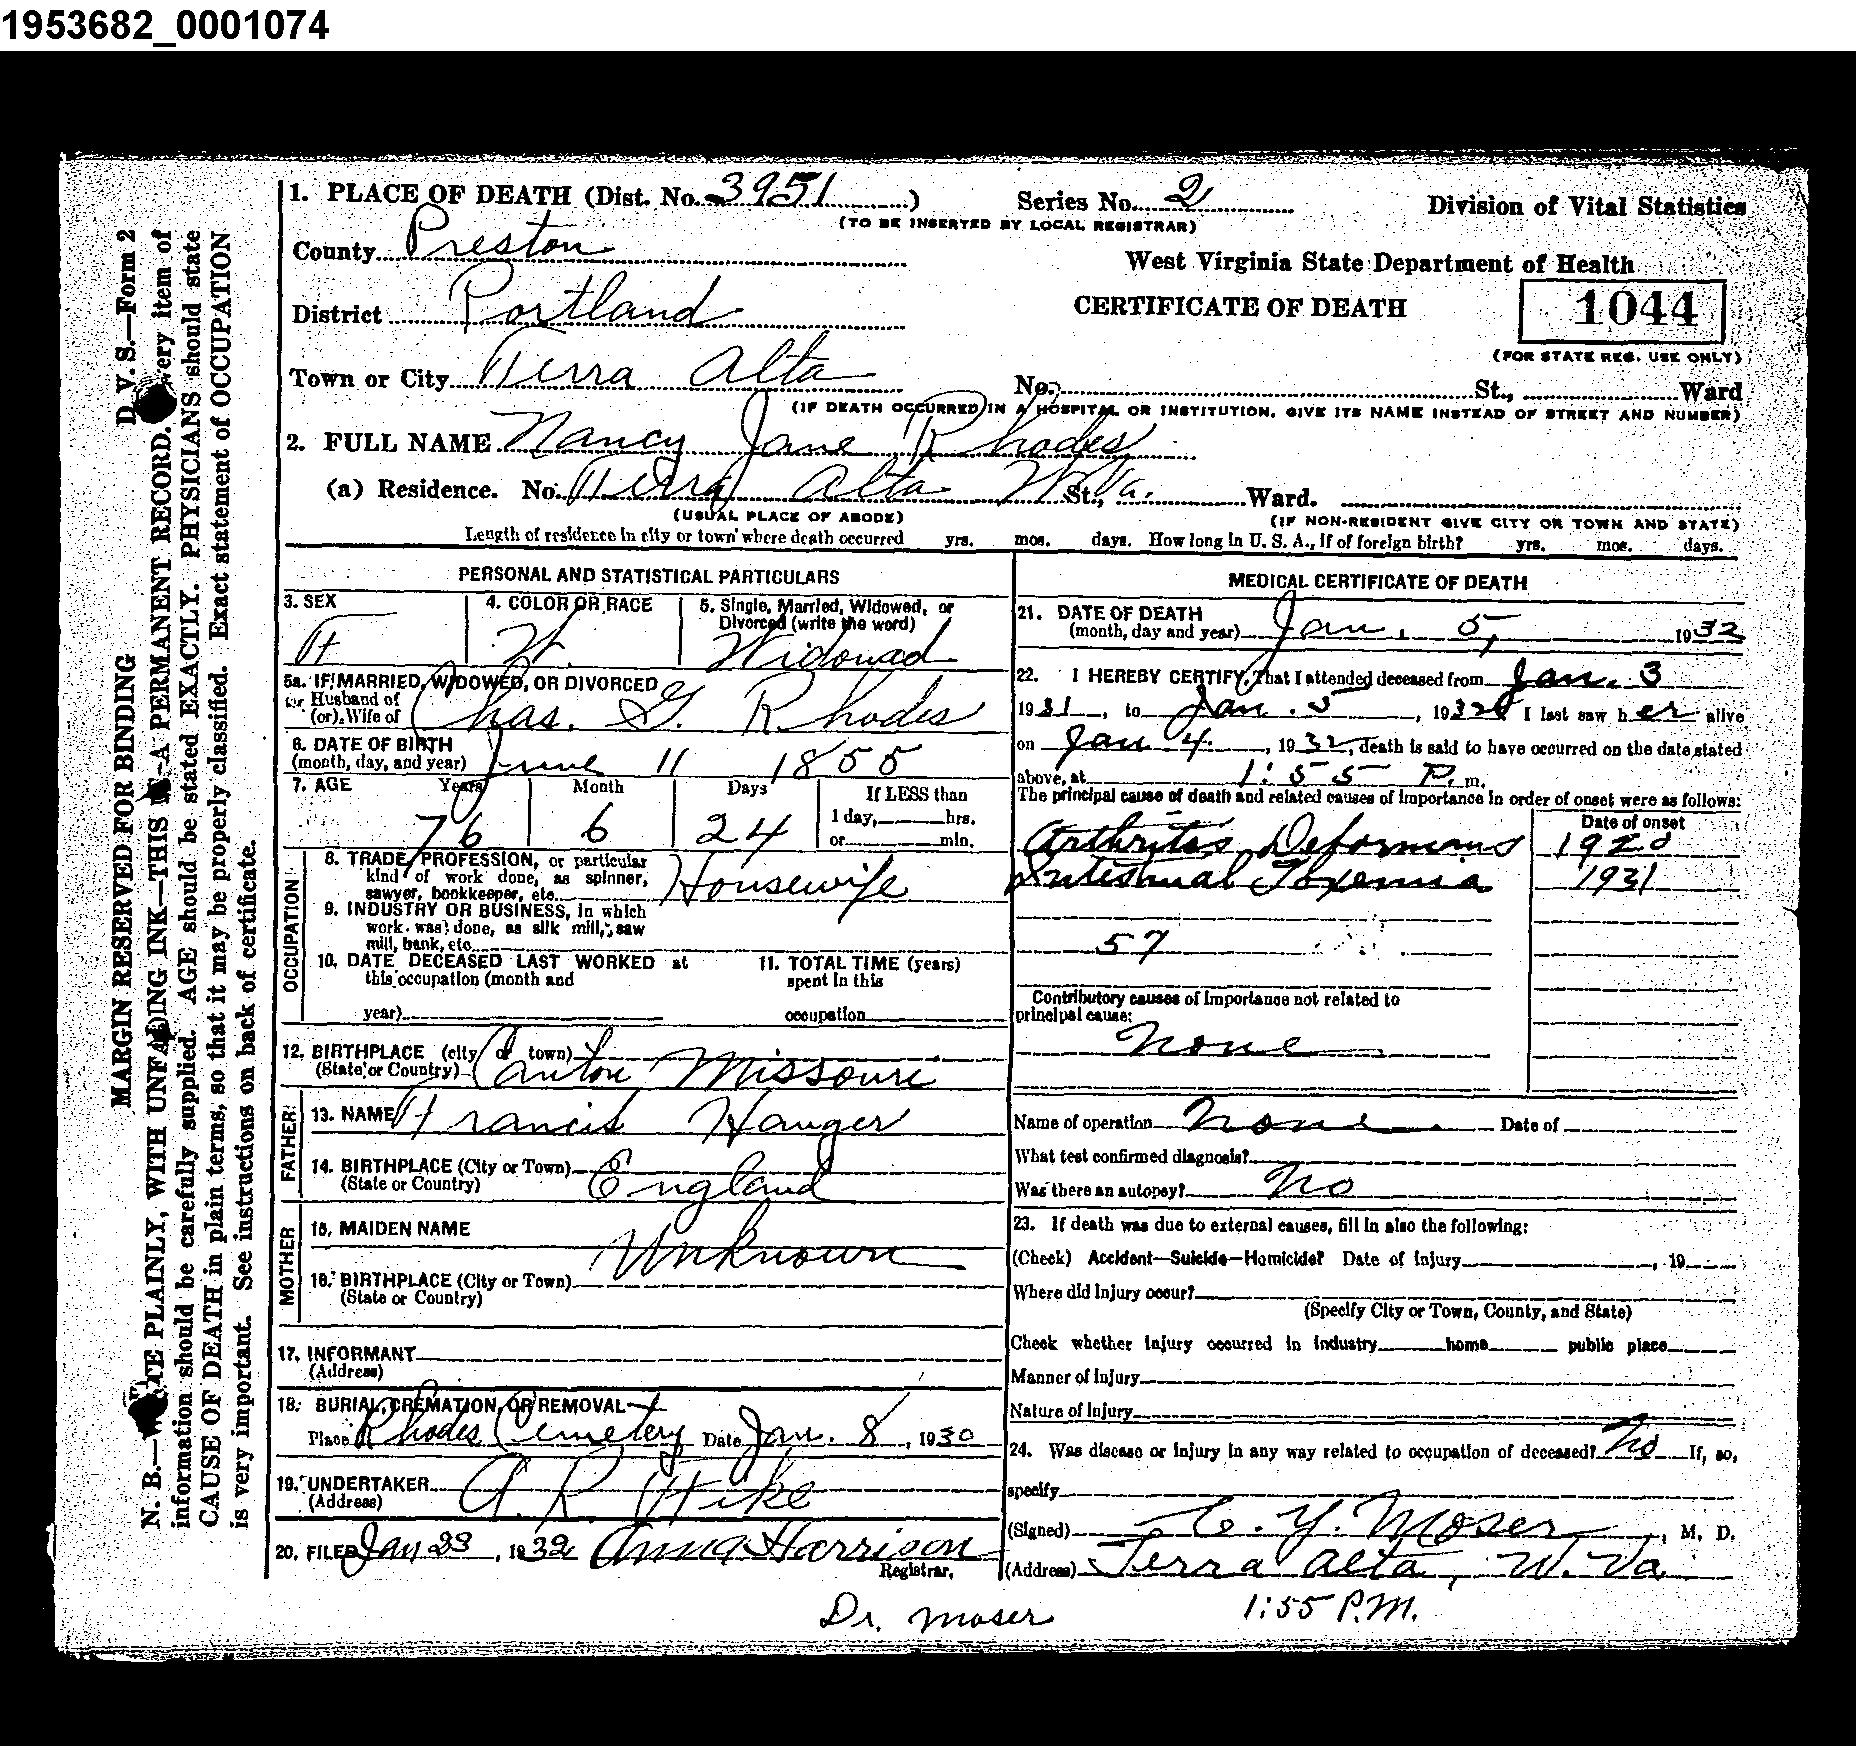 1953682_0001074
1. PLACE OF DEATH (Dist. No. 3951 ) Series No. 2 Division of Vital Statistics
(TO BE INSERTED BY LOCAL REGISTRAR)
County Preston
West Virginia State Department of Health
District Portland CERTIFICATE OF DEATH 1044
(FOR STATE REG. USE ONLY)
Town or City Terra Alta No. St., Ward
(IF DEATH OCCURRED IN A HOSPITAL OR INSTITUTION, GIVE ITS NAME INSTEAD OF STREET AND NUMBER)
2. FULL NAME Nancy Jane Rhodes
(a) Residence. No. Terra Alta W.Va. St., Ward.
(USUAL PLACE OF ABODE) (IF NON-RESIDENT GIVE CITY OR TOWN AND STATE)
Length of residence in city or town where death occurred yrs. mos. days. How long in U. S. A., if of foreign birth? yrs. mos. days.
PERSONAL AND STATISTICAL PARTICULARS
3. SEX 4. COLOR OR RACE 5. Single, Married, Widowed, or
Divorced (write the word)
F W. Widowad
5a. IF MARRIED, WIDOWED, OR DIVORCED
or Husband of
(or) Wife of Chas. G. Rhodes
6. DATE OF BIRTH
(month, day, and year) June 11 1855
7. AGE Years Month Days If LESS than
1 day, hrs.
76 6 24 or min.
OCCUPATION
8. TRADE, PROFESSION, or particular
kind of work done, as spinner,
sawyer, bookkeeper, etc. Housewife
9. INDUSTRY OR BUSINESS, in which
work was done, as silk mill, saw
mill, bank, etc.
10. DATE DECEASED LAST WORKED at 11. TOTAL TIME (years)
this occupation (month and spent in this
year) occupation
12. BIRTHPLACE (city or town)
(State or Country) Canton Missouri
FATHER
13. NAME Francis Hauger
14. BIRTHPLACE (City or Town)
(State or Country) England
MOTHER
15. MAIDEN NAME Unknown
16. BIRTHPLACE (City or Town)
(State or Country)
17. INFORMANT
(Address)
18. BURIAL, CREMATION, OR REMOVAL
Place Rhodes Cemetery Date Jan. 8, 1930
19. UNDERTAKER A. R. Fike
(Address)
20. FILED Jan 23, 1932 Anna Harrison
Registrar.
MEDICAL CERTIFICATE OF DEATH
21. DATE OF DEATH
(month, day and year) Jan. 5, 1932
22. I HEREBY CERTIFY, That I attended deceased from Jan. 3
1931, to Jan. 5, 1932 I last saw h er alive
on Jan 4, 1932, death is said to have occurred on the date stated
above, at 1:55 P. m.
The principal cause of death and related causes of importance in order of onset were as follows:
Date of onset
Arthritis Deformans 1920
Intestinal Toxemia 1931
57
Contributory causes of importance not related to
principal cause:
None
Name of operation None Date of
What test confirmed diagnosis?
Was there an autopsy? No
23. If death was due to external causes, fill in also the following:
(Check) Accident—Suicide—Homicide? Date of injury , 19
Where did injury occur?
(Specify City or Town, County, and State)
Check whether injury occurred in industry home public place
Manner of Injury
Nature of Injury
24. Was disease or injury in any way related to occupation of deceased? No If, so,
specify
(Signed) C. Y. Moser, M. D.
(Address) Terra Alta, W. Va
Dr. Moser 1:55 P.M.
D. V. S.—Form 2
MARGIN RESERVED FOR BINDING
N. B.—WRITE PLAINLY, WITH UNFADING INK—THIS IS A PERMANENT RECORD. Every item of
information should be carefully supplied. AGE should be stated EXACTLY. PHYSICIANS should state
CAUSE OF DEATH in plain terms, so that it may be properly classified. Exact statement of OCCUPATION
is very important. See instructions on back of certificate.